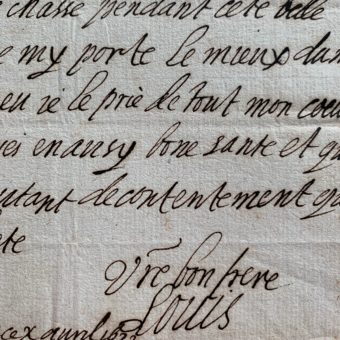 chasse pendant cete belle
e my porte le mieux du
ie le prie de tout mon coeur
en ausy bone sante et qu
autant de contentement q
ete
Vre bon frere
LOUIS